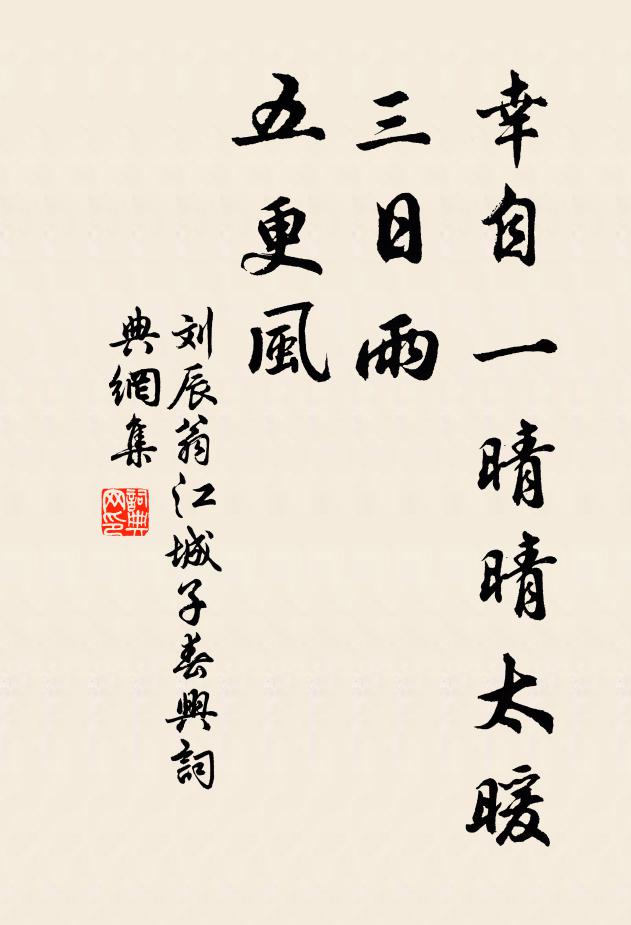 幸自一晴晴太暖
三日雨
五更風
刘辰翁江城子春興詞
典網集
詞典
网印